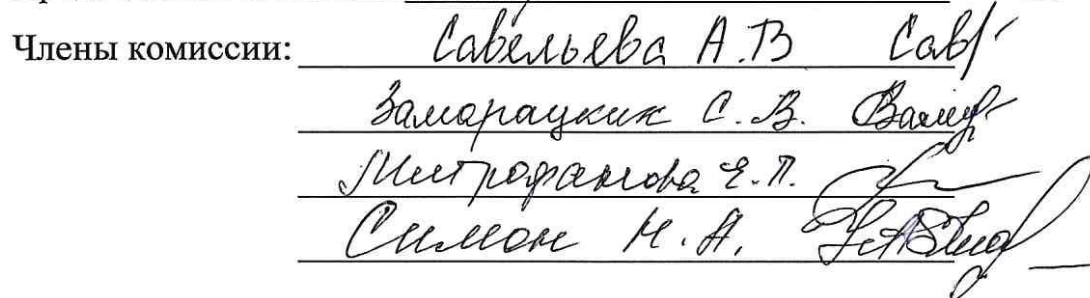 Члены комиссии: Савельева А.В
Замарацкий С.В.
Митрофанова Е.П.
Симон Н.А.